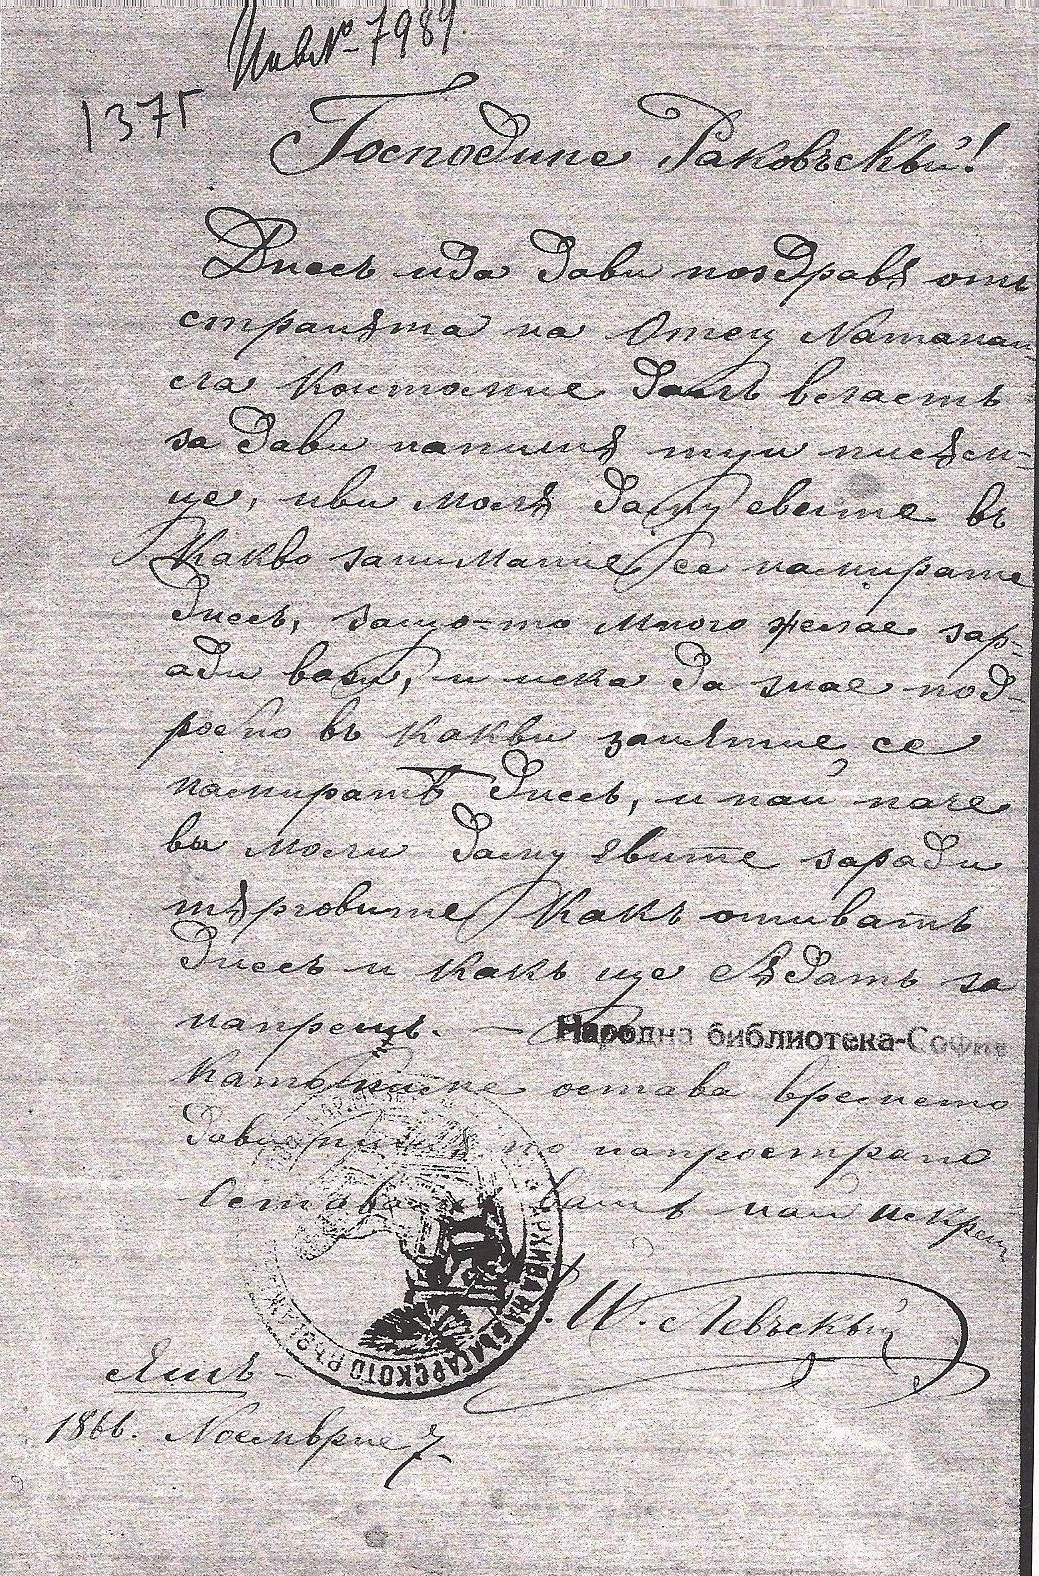 Инв №-7989.
1375
Господине Раковъскый!
Днесь ида дави поздравѫ отъ
странѫта на Отец Натанаи-
ла който мие далъ власть
за дави напишѫ туи писѫм-
це, иви молѫ дамy евите въ
какво занимание се намирате
днесь, защо-то много желае зар-
ади васъ, и иска да знае под-
робно въ какви занятие се
намиратѣ днесь, и най паче
вы моли дамy явите заради
тѫрговите какъ отиватъ
днесь и какъ ще бѫдатъ за
напрешъ. —
Народна библиотека-София
остава времето
дави пишѫ по напространо
Оставам вашъ най искрен
В. И. Левъскый
АРХИВА НА БЪЛГАРСКОТО ВЪЗРАЖДАНЕ
Яшъ -
1866. Ноемврие 7.